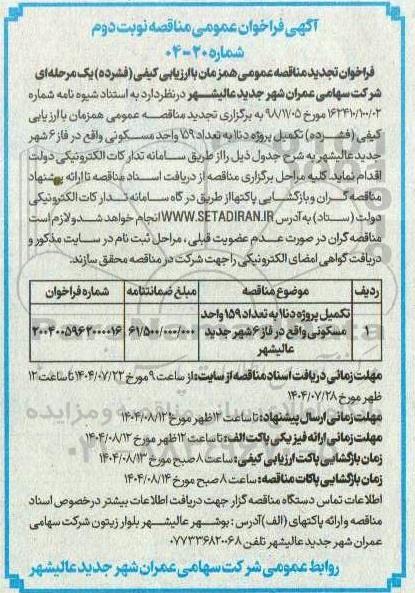 آگهی فراخوان عمومی مناقصه نوبت دوم
شماره ۲۰-۰۴
فراخوان تجدید مناقصه عمومی همزمان با ارزیابی کیفی (فشرده) یک مرحله‌ای
شرکت سهامی عمران شهر جدید عالیشهر در نظر دارد به استناد شیوه نامه شماره
۱۶۲۴۱۰/۱۰۰/۰۲ مورخ ۹۸/۱۱/۰۵ به برگزاری تجدید مناقصه عمومی همزمان با ارزیابی
کیفی (فشرده) تکمیل پروژه دنا۱ به تعداد ۱۵۹ واحد مسکونی واقع در فاز ۶ شهر
جدید عالیشهر به شرح جدول ذیل را از طریق سامانه تدارکات الکترونیکی دولت
اقدام نماید. کلیه مراحل برگزاری مناقصه از دریافت اسناد مناقصه تا ارائه پیشنهاد
مناقصه گران و بازگشایی پاکتها از طریق درگاه سامانه تدارکات الکترونیکی
دولت (ستاد) به آدرس WWW.SETADIRAN.IR انجام خواهد شد و لازم است
مناقصه گران در صورت عدم عضویت قبلی، مراحل ثبت نام در سایت مذکور و
دریافت گواهی امضای الکترونیکی را جهت شرکت در مناقصه محقق سازند.
ردیف موضوع مناقصه مبلغ ضمانتنامه شماره فراخوان
۱ تکمیل پروژه دنا۱ به تعداد ۱۵۹ واحد مسکونی واقع در فاز ۶ شهر جدید عالیشهر ۶۱/۵۰۰/۰۰۰/۰۰۰ ۲۰۰۴۰۰۵۹۶۲۰۰۰۰۱۶
مهلت زمانی دریافت اسناد مناقصه از سایت: از ساعت ۹ مورخ ۱۴۰۴/۰۷/۲۲ تا ساعت ۱۲
ظهر مورخ ۱۴۰۴/۰۷/۲۸
مهلت زمانی ارسال پیشنهاد: تا ساعت ۱۲ ظهر مورخ ۱۴۰۴/۰۸/۱۲
مهلت زمانی ارائه فیزیکی پاکت الف: تا ساعت ۱۲ ظهر مورخ ۱۴۰۴/۰۸/۱۲
زمان بازگشایی پاکت ارزیابی کیفی: ساعت ۸ صبح مورخ ۱۴۰۴/۰۸/۱۳
زمان بازگشایی پاکات مناقصه: ساعت ۸ صبح مورخ ۱۴۰۴/۰۸/۱۴
اطلاعات تماس دستگاه مناقصه گزار جهت دریافت اطلاعات بیشتر در خصوص اسناد
مناقصه و ارائه پاکتهای (الف) آدرس: بوشهر عالیشهر بلوار زیتون شرکت سهامی
عمران شهر جدید عالیشهر تلفن ۰۷۷۳۳۶۸۲۰۰۶۸
روابط عمومی شرکت سهامی عمران شهر جدید عالیشهر